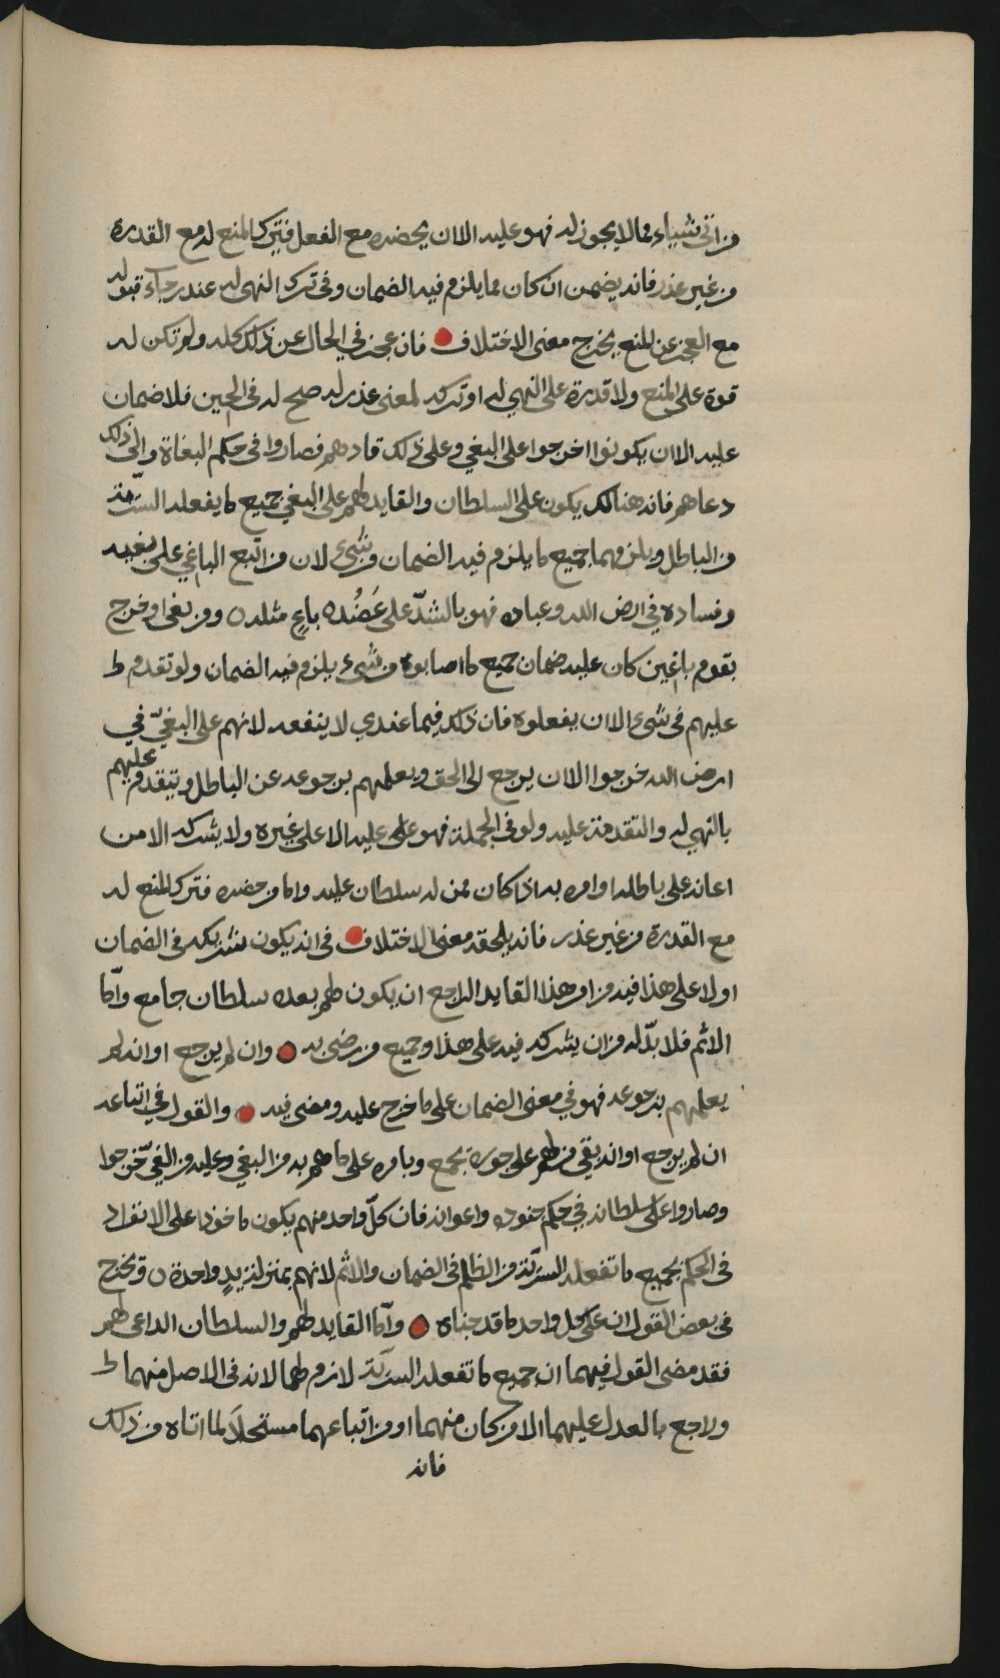 من اتى شياء مما لا يجوز له فهو عليه الا ان يحضره مع الفعل فيترك المنع له مع القدرة
من غير عذر فانه يضمن ان كان مما يلزم فيه الضمان وفي ترك النهي له عند رجاء قبوله
مع العجز عن المنع يخرج معنى الاختلاف فان عجز في الحال عن ذلك كله ولم تكن له
قوة على المنع ولا قدرة على النهي له او تركه لمعنى عذر له صح له في الحين فلا ضمان
عليه الا ان يكونوا اخرجوا على البغي وعلى ذلك قادهم فصاروا في حكم البغاة والى ذلك
دعاهم فانه هنالك يكون على السلطان والقايد لهم على البغي جميع ما يفعله السرية
من الباطل ويلزمهما جميع ما يلزم فيه الضمان من شيء لان من اتبع الباغي على بغيه
وفساده في ارض الله وعباده فهو بالشدّ على عَضُده باغٍ مثله ومن بغى او خرج
بقوم باغين كان عليه ضمان جميع ما اصابوه من شيء يلزم فيه الضمان ولو تقدم
عليهم في شيء الا ان يفعلوه فان ذلك فيما عندي لا ينفعه لانهم على البغيّ في
ارض الله خرجوا الا ان يرجع الى الحق ويعلمهم برجوعه عن الباطل ويتقدم عليهم
بالنهي له والتقدمة عليه ولو في الجملة فهو على عليه الا على غيره ولا يشركه الا من
اعانه على باطله او امره به اذا كان ممن له سلطان عليه واما من حضره فترك المنع له
مع القدرة من غير عذر فانه يلحقه معنى الاختلاف في انه يكون شريكه في الضمان
او لا على هذا فيه من امر هذا القايد الراجع ان يكون لهم بعده سلطان جامع وأمّا
الاثم فلا بدّ له من ان يشركه فيه على هذا وجميع من رضي به وان لم يرجع او انه لم
يعلمهم برجوعه فهو في معنى الضمان على ما خرج عليه ومضى فيه والقول في اتباعه
ان لم يرجع او انه بقي من لهم على جوره يجمع ويامره على ما هم به من البغي وعليه من الغيّ خرجوا
وصاروا على سلطانه في حكم جنوده واعوانه فان كلّ واحد منهم يكون ماخوذا على الانفراد
في الحكم بجميع ما تفعله السريّة من الظلم في الضمان والاثم لانهم بمنزلة يدٍ واحدة ويخرج
في بعض القول ان على كل واحد ما قد جناه وأمّا القايد لهم والسلطان الداعي لهم
فقد مضى القول فيهما ان جميع ما تفعله السريّة لازم لهما لانه في الاصل منهما
وراجع بالعدل عليهما الا من كان منهما او من اتباعهما مستحلاً لما اتاه من ذلك
فانه